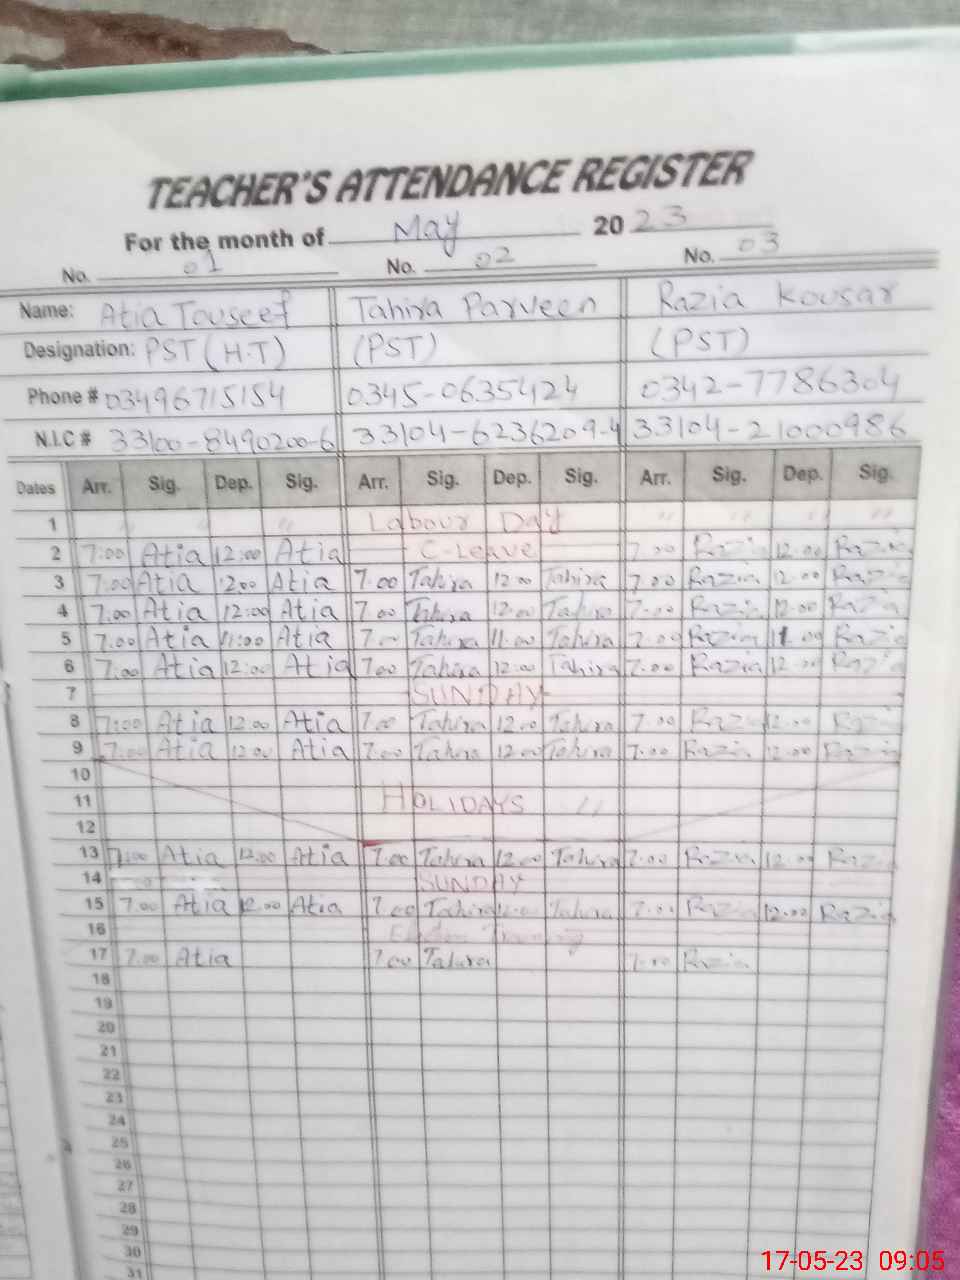 TEACHER'S ATTENDANCE REGISTER
For the month of May 2023
No. 01 No. 02 No. 03
Name: Atia Touseef Tahira Parveen Razia Kousar
Designation: PST (H.T) (PST) (PST)
Phone # 03496715154 0345-0635424 0342-7786304
N.I.C # 33100-8490200-6 33104-6236209-4 33104-21000986
Dates Arr. Sig. Dep. Sig. Arr. Sig. Dep. Sig. Arr. Sig. Dep. Sig.
1 " " " Labour Day " " " "
2 7:00 Atia 12:00 Atia C-Leave 7.00 Razia 12.00 Razia
3 7:00 Atia 12.00 Atia 7.00 Tahira 12.00 Tahira 7.00 Razia 12.00 Razia
4 7:00 Atia 12:00 Atia 7.00 Tahira 12.00 Tahira 7.00 Razia 12.00 Razia
5 7.00 Atia 11:00 Atia 7.00 Tahira 11.00 Tahira 7.00 Razia 11.00 Razia
6 7:00 Atia 12:00 Atia 7.00 Tahira 12:00 Tahira 7.00 Razia 12.00 Razia
7 SUNDAY
8 7:00 Atia 12.00 Atia 7.00 Tahira 12.00 Tahira 7.00 Razia 12.00 Razia
9 7.00 Atia 12.00 Atia 7.00 Tahira 12.00 Tahira 7.00 Razia 12.00 Razia
10
11 HOLIDAYS "
12
13 7:00 Atia 12.00 Atia 7.00 Tahira 12.00 Tahira 7.00 Razia 12.00 Razia
14 SUNDAY
15 7.00 Atia 12.00 Atia 7.00 Tahira 12.00 Tahira 7.00 Razia 12.00 Razia
16 Training
17 7.00 Atia 7.00 Tahira 7.00 Razia
18
19
20
21
22
23
24
25
26
27
28
29
30
31
17-05-23 09:05